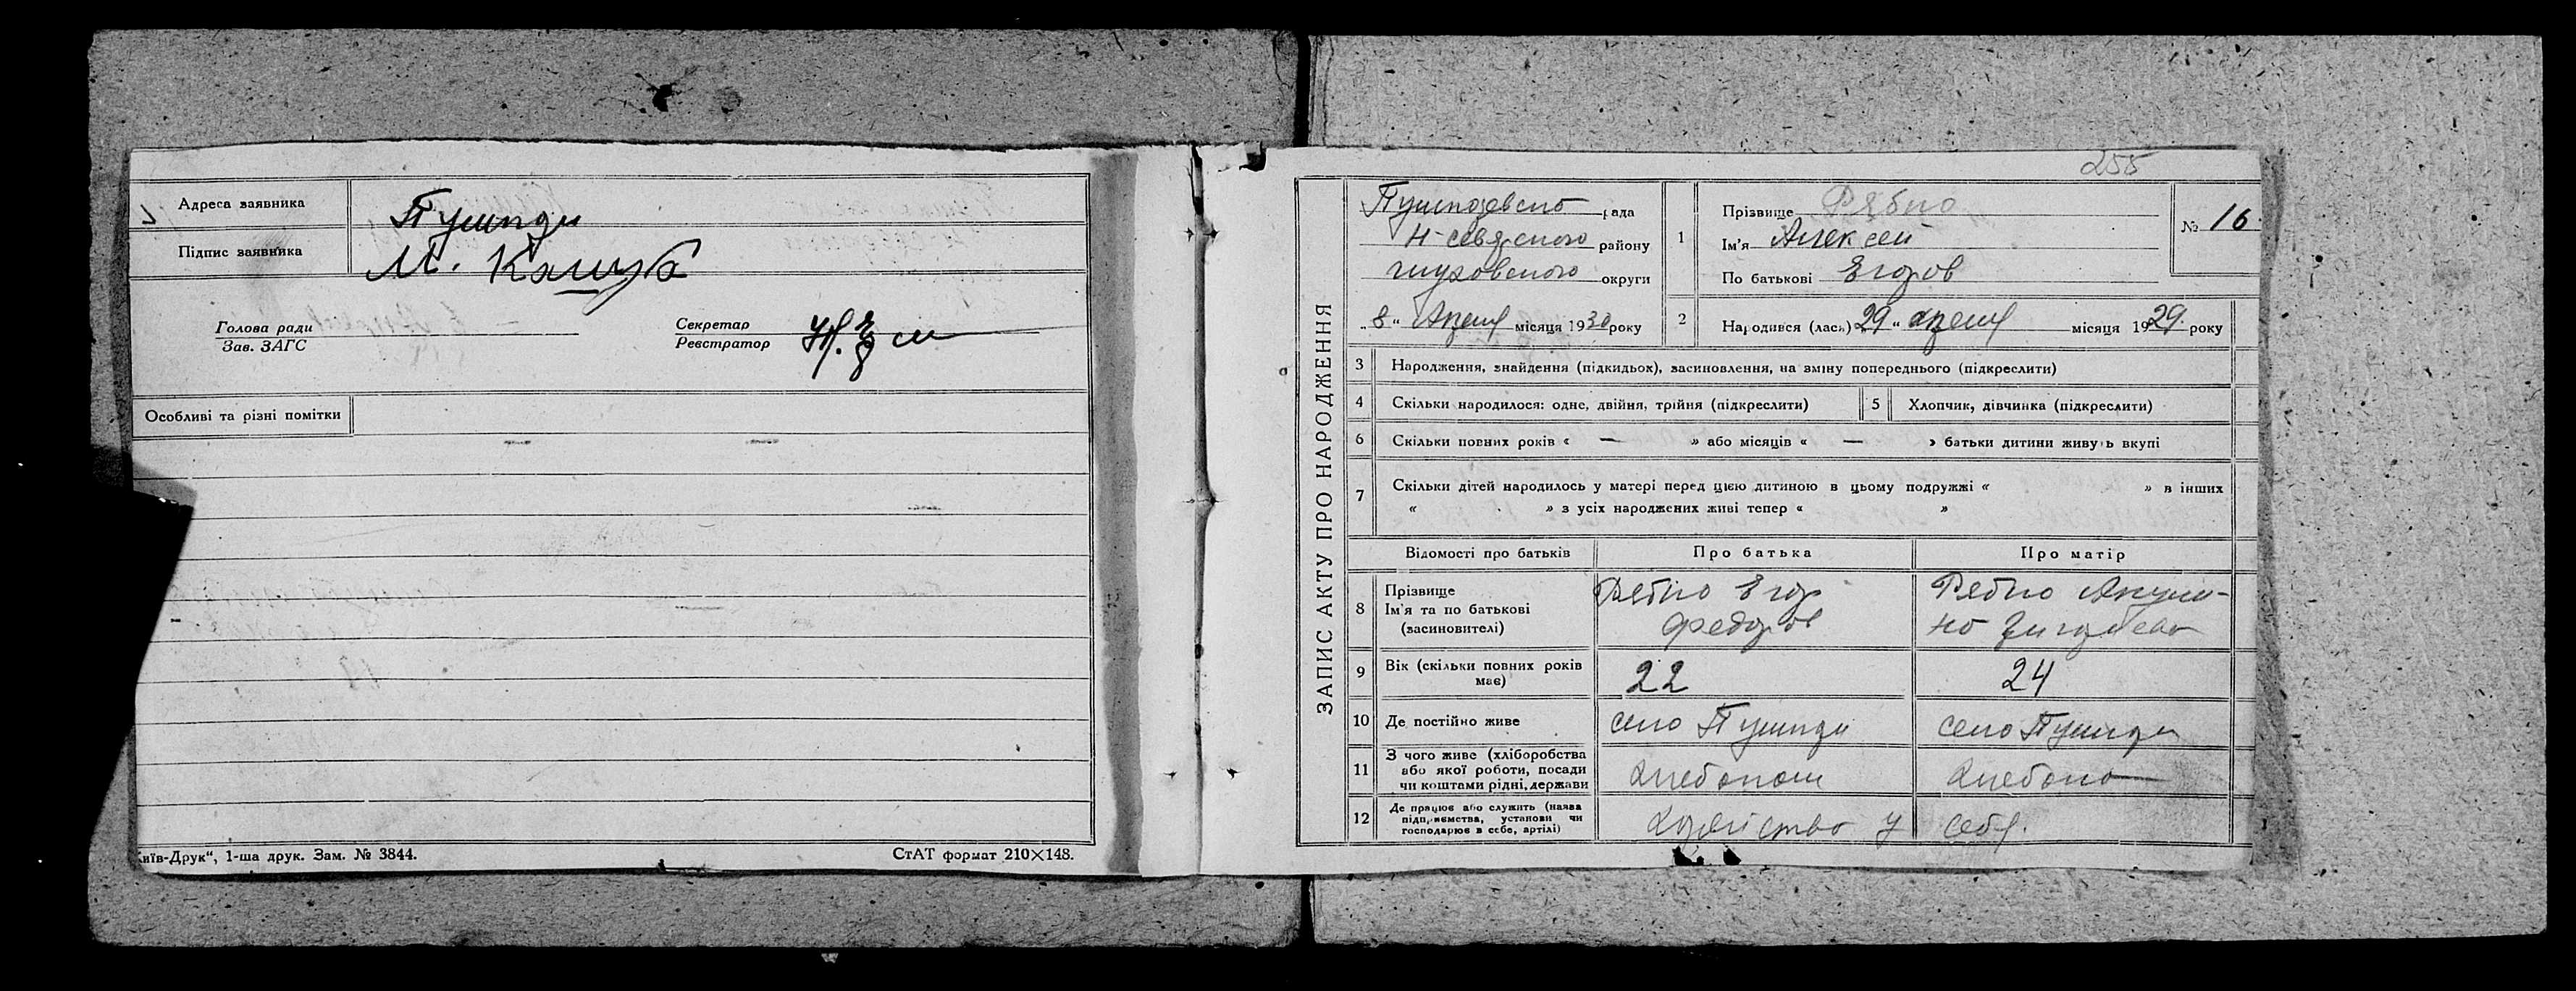 Адреса заявника
Пушкди
Підпис заявника
М. Кашуба
Голова ради
Зав. ЗАГС
Секретар
Реєстратор
Особливі та різні помітки
иїв-Друк“, 1-ша друк. Зам. № 3844.
СтАТ формат 210×148.
255
ЗАПИС АКТУ ПРО НАРОДЖЕННЯ
рада
Н-севрского району
глуховского округи
„8“ Апреля місяця 1930 року
1
Прізвище Рябко
Ім'я Алексей
По батькові Егоров
№ 16
2
Народився (лась) „29“ апреля місяця 1929. року
3 Народження, знайдення (підкидьох), засиновлення, на зміну попереднього (підкреслити)
4 Скільки народилося: одне, двійня, трійня (підкреслити)
5 Хлопчик, дівчинка (підкреслити)
6 Скільки повних років « — » або місяців « — » батьки дитини живуть вкупі
7 Скільки дітей народилось у матері перед цією дитиною в цьому подружжі « » в інших
« » з усіх народжених живі тепер « »
Відомості про батьків
Про батька
Про матір
8 Прізвище
Ім'я та по батькові
(засиновителі)
Рябко Егор
Федоров
Рябко Акули-
на
9 Вік (скільки повних років
має)
22
24
10 Де постійно живе
село
село
11 З чого живе (хліборобства
або якої роботи, посади
чи коштами рідні, держави
хлебопаш
хлебопа
12 Де працює або служить (назва
підприємства, установи чи
господарює в себе, артілі)
Хозяйство у себя.